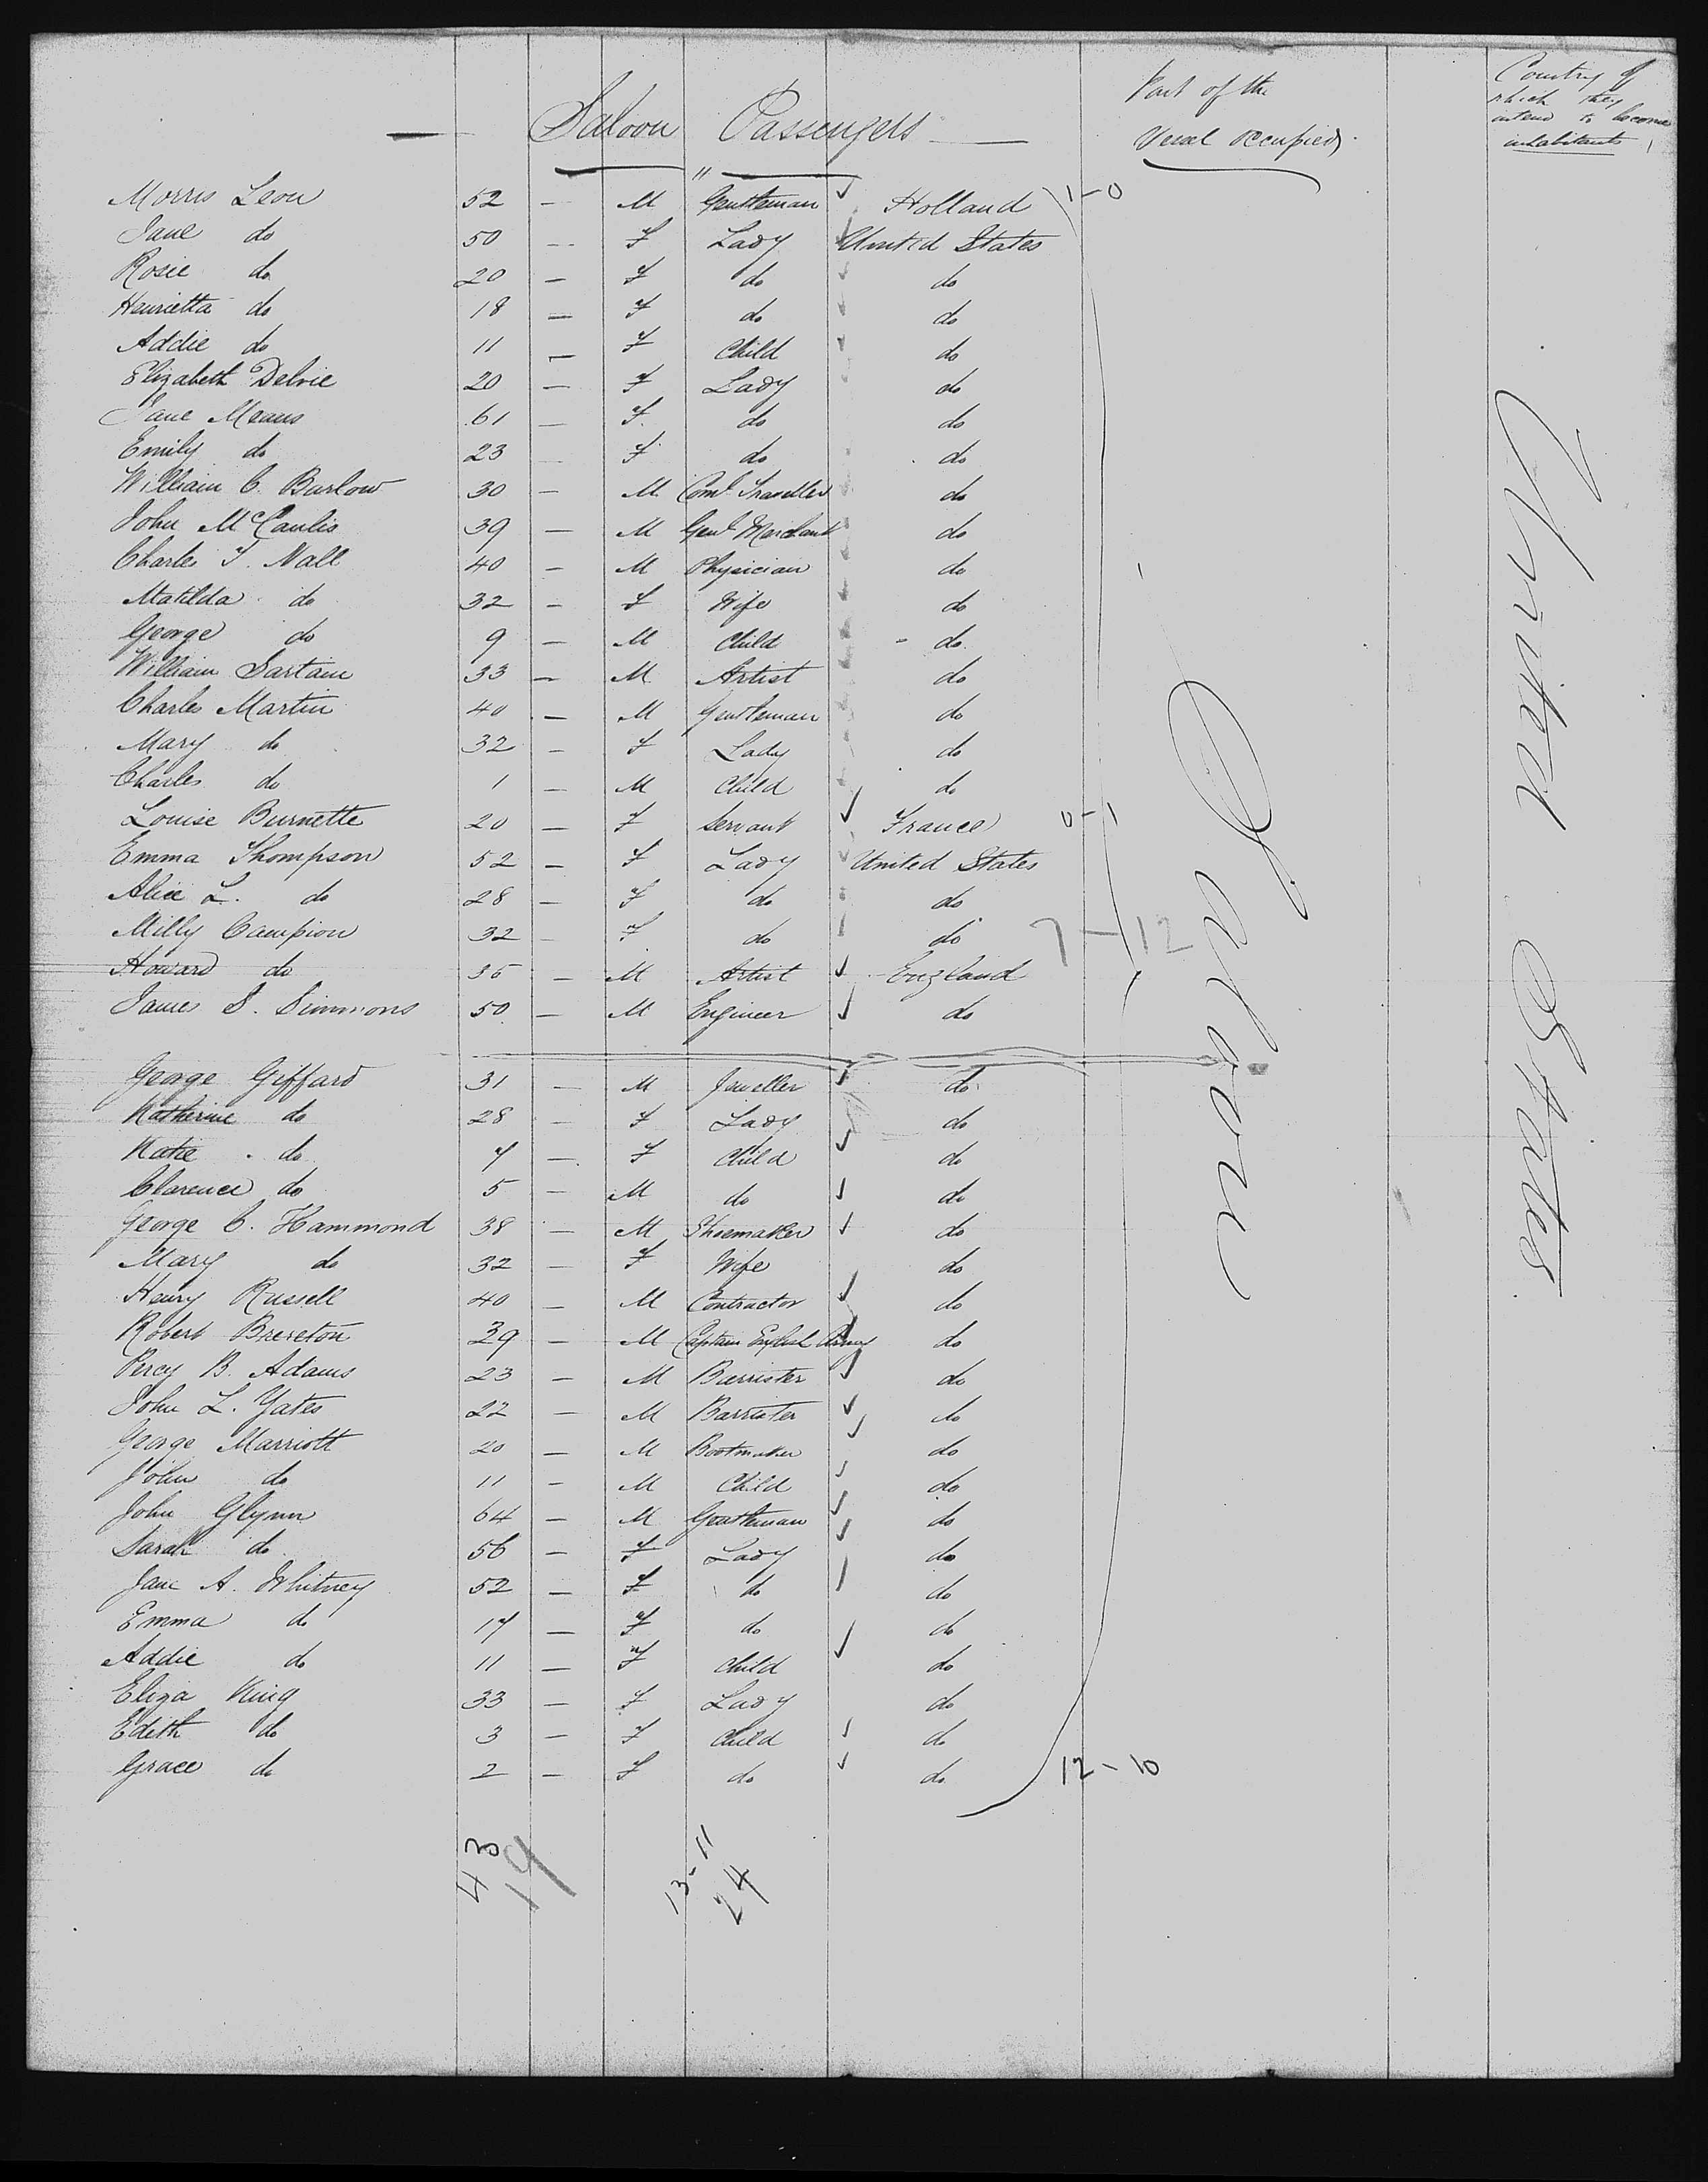 Saloon Passengers
Part of the Vessel occupied
Country of which they intend to become inhabitants
Morris Leon 52 — M Gentleman Holland 1-0
Jane do 50 — F Lady United States
Rosie do 20 — F do do
Henrietta do 18 — F do do
Addie do 11 — F Child do
Elizabeth Delvie 20 — F Lady do
Jane Means 61 — F do do
Emily do 23 — F do do
William C. Barlow 30 — M Coml Traveller do
John McCaulis 39 — M Genl Merchant do
Charles T. Nall 40 — M Physician do
Matilda do 32 — F Wife do
George do 9 — M Child do
William Sartain 33 — M Artist do
Charles Martin 40 — M Gentleman do
Mary do 32 — F Lady do
Charles do 1 — M Child do
Louise Burnette 20 — F Servant France 0-1
Emma Thompson 52 — F Lady United States
Alice L. do 28 — F do do
Milly Campion 32 — F do do 7-12
Howard do 35 — M Artist England
James S. Simmons 50 — M Engineer do
George Giffard 31 — M Jeweller do
Katherine do 28 — F Lady do
Katie do 7 — F Child do
Clarence do 5 — M do do
George C. Hammond 38 — M Shoemaker do
Mary do 32 — F Wife do
Henry Russell 40 — M Contractor do
Robert Brereton 39 — M Captain English Army do
Percy B. Adams 23 — M Barrister do
John L. Yates 22 — M Barrister do
George Marriott 20 — M Bootmaker do
John do 11 — M Child do
John Glynn 64 — M Gentleman do
Sarah do 56 — F Lady do
Jane A. Whitney 52 — F do do
Emma do 17 — F do do
Addie do 11 — F Child do
Eliza King 33 — F Lady do
Edith do 3 — F Child do
Grace do 2 — F do do 12-10
Saloon
United States
43
19
13-11
24